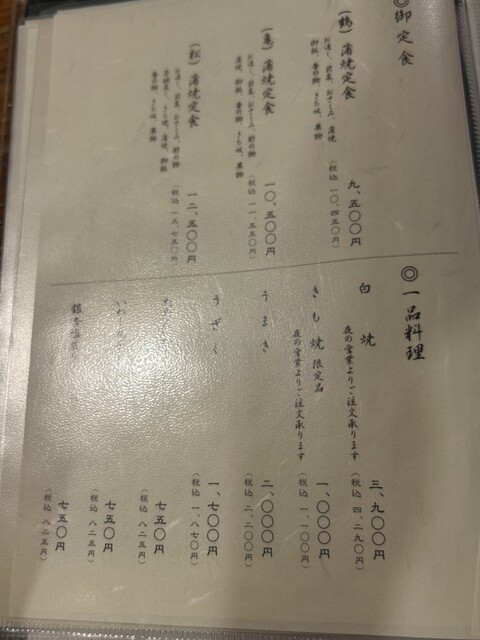 ◎御定食
(鶴) 蒲焼定食
お通し、前菜、おさしみ、蒲焼
御飯、香の物、きも吸、果物
九、五〇〇円
(税込 一〇、四五〇円)
(亀) 蒲焼定食
お通し、前菜、おさしみ、酢の物
蒲焼、御飯、香の物、きも吸、果物
一〇、五〇〇円
(税込 一一、五五〇円)
(松) 蒲焼定食
お通し、前菜、おさしみ、酢の物
蒲焼、御飯
香の物、きも吸、果物
一二、五〇〇円
(税込 一三、七五〇円)
◎一品料理
白焼
夜の営業よりご注文承ります
三、九〇〇円
(税込 四、二九〇円)
きも焼 限定品
夜の営業よりご注文承ります
一、〇〇〇円
(税込 一、一〇〇円)
うまき
二、〇〇〇円
(税込 二、二〇〇円)
うざく
一、七〇〇円
(税込 一、八七〇円)
七五〇円
(税込 八二五円)
七五〇円
(税込 八二五円)
七五〇円
(税込 八二五円)